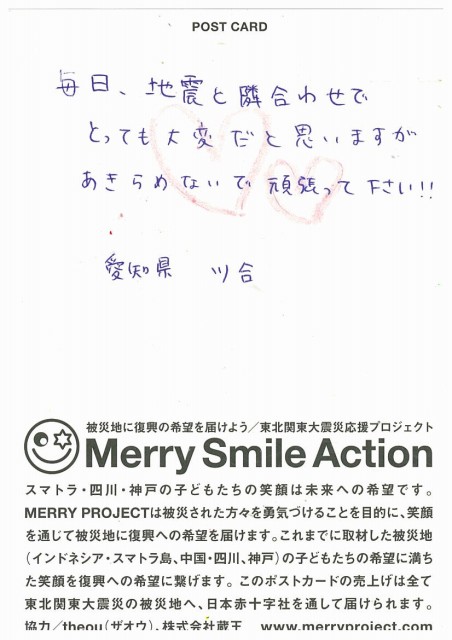 POST CARD
毎日、地震と隣合わせで
とっても大変だと思いますが
あきらめないで頑張って下さい!!
愛知県 ツ合
被災地に復興の希望を届けよう／東北関東大震災応援プロジェクト
Merry Smile Action
スマトラ・四川・神戸の子どもたちの笑顔は未来への希望です。
MERRY PROJECTは被災された方々を勇気づけることを目的に、笑顔
を通じて被災地に復興への希望を届けます。これまでに取材した被災地
（インドネシア・スマトラ島、中国・四川、神戸）の子どもたちの希望に満ち
た笑顔を復興への希望に繋げます。このポストカードの売上げは全て
東北関東大震災の被災地へ、日本赤十字社を通して届けられます。
協力／theou（ザオウ）、株式会社蔵王 www.merryproject.com